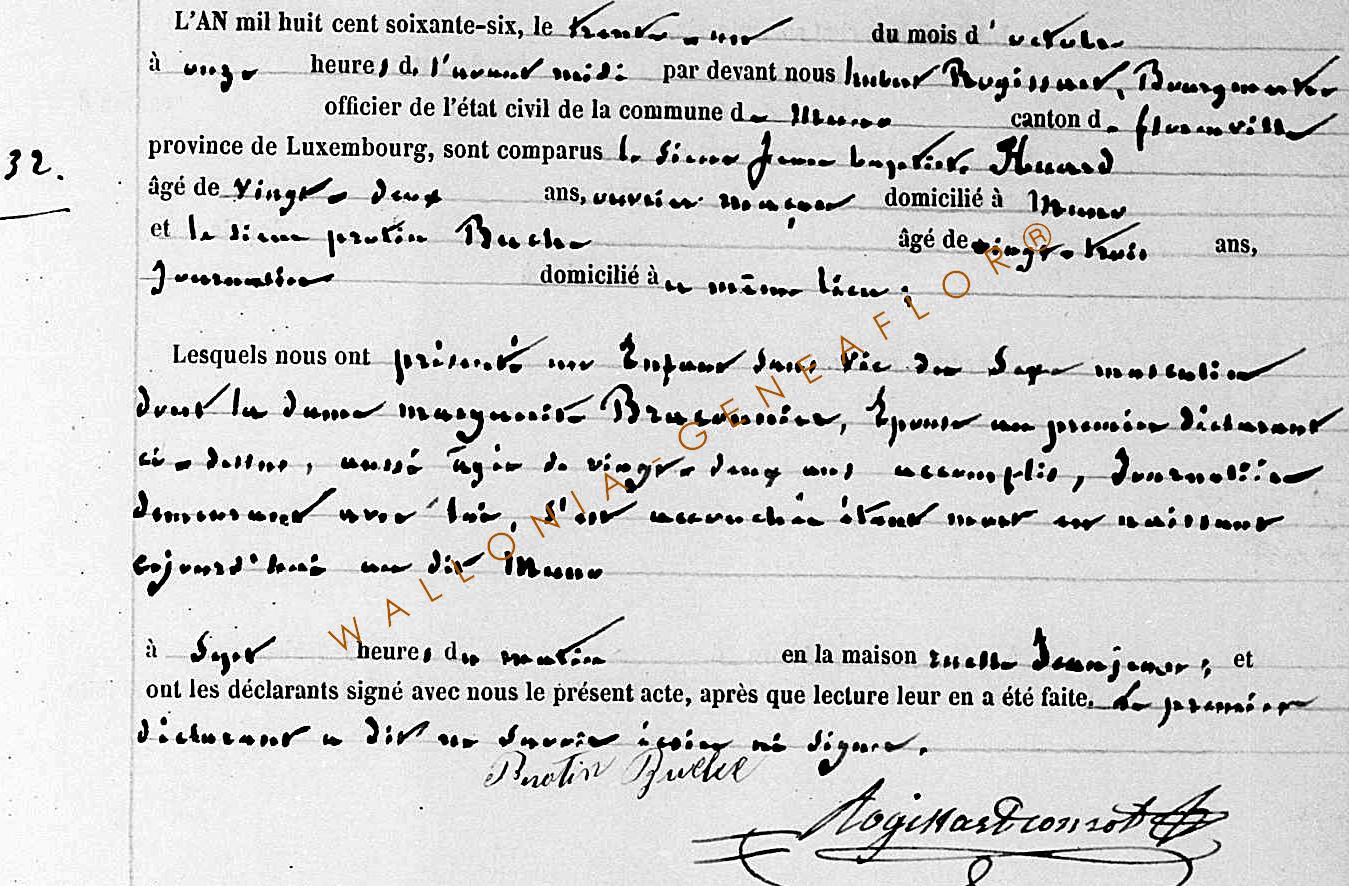 L'AN mil huit cent soixante-six, le trente-un du mois d'octobre
à onze heures d. l'avant midi par devant nous hubert Rogissart, Bourgmestre
officier de l'état civil de la commune de Muno canton de florenville
province de Luxembourg, sont comparus le sieur Jean baptiste Huard
32.
âgé de vingt-deux ans, ouvrier maçon domicilié à Muno
et le sieur protin Buche âgé de vingt-trois ans,
Journalier domicilié à u même lieu ;
Lesquels nous ont présenté un Enfant sans vie du Sexe masculin
dont la dame marguerite Braconnier, Epouse au premier déclarant
ci-dessus, aussi âgée de vingt-deux ans accomplis, Journalière
demeurant avec lui, s'est accouchée étant mort en naissant
cejourd'hui au dit Muno
à Sept heures du matin en la maison ruelle ; et
ont les déclarants signé avec nous le présent acte, après que lecture leur en a été faite. Le premier
déclarant a dit ne savoir écrire ni signer.
Protin Buche
Rogissart
WALLONIA-GENEAFLOR®